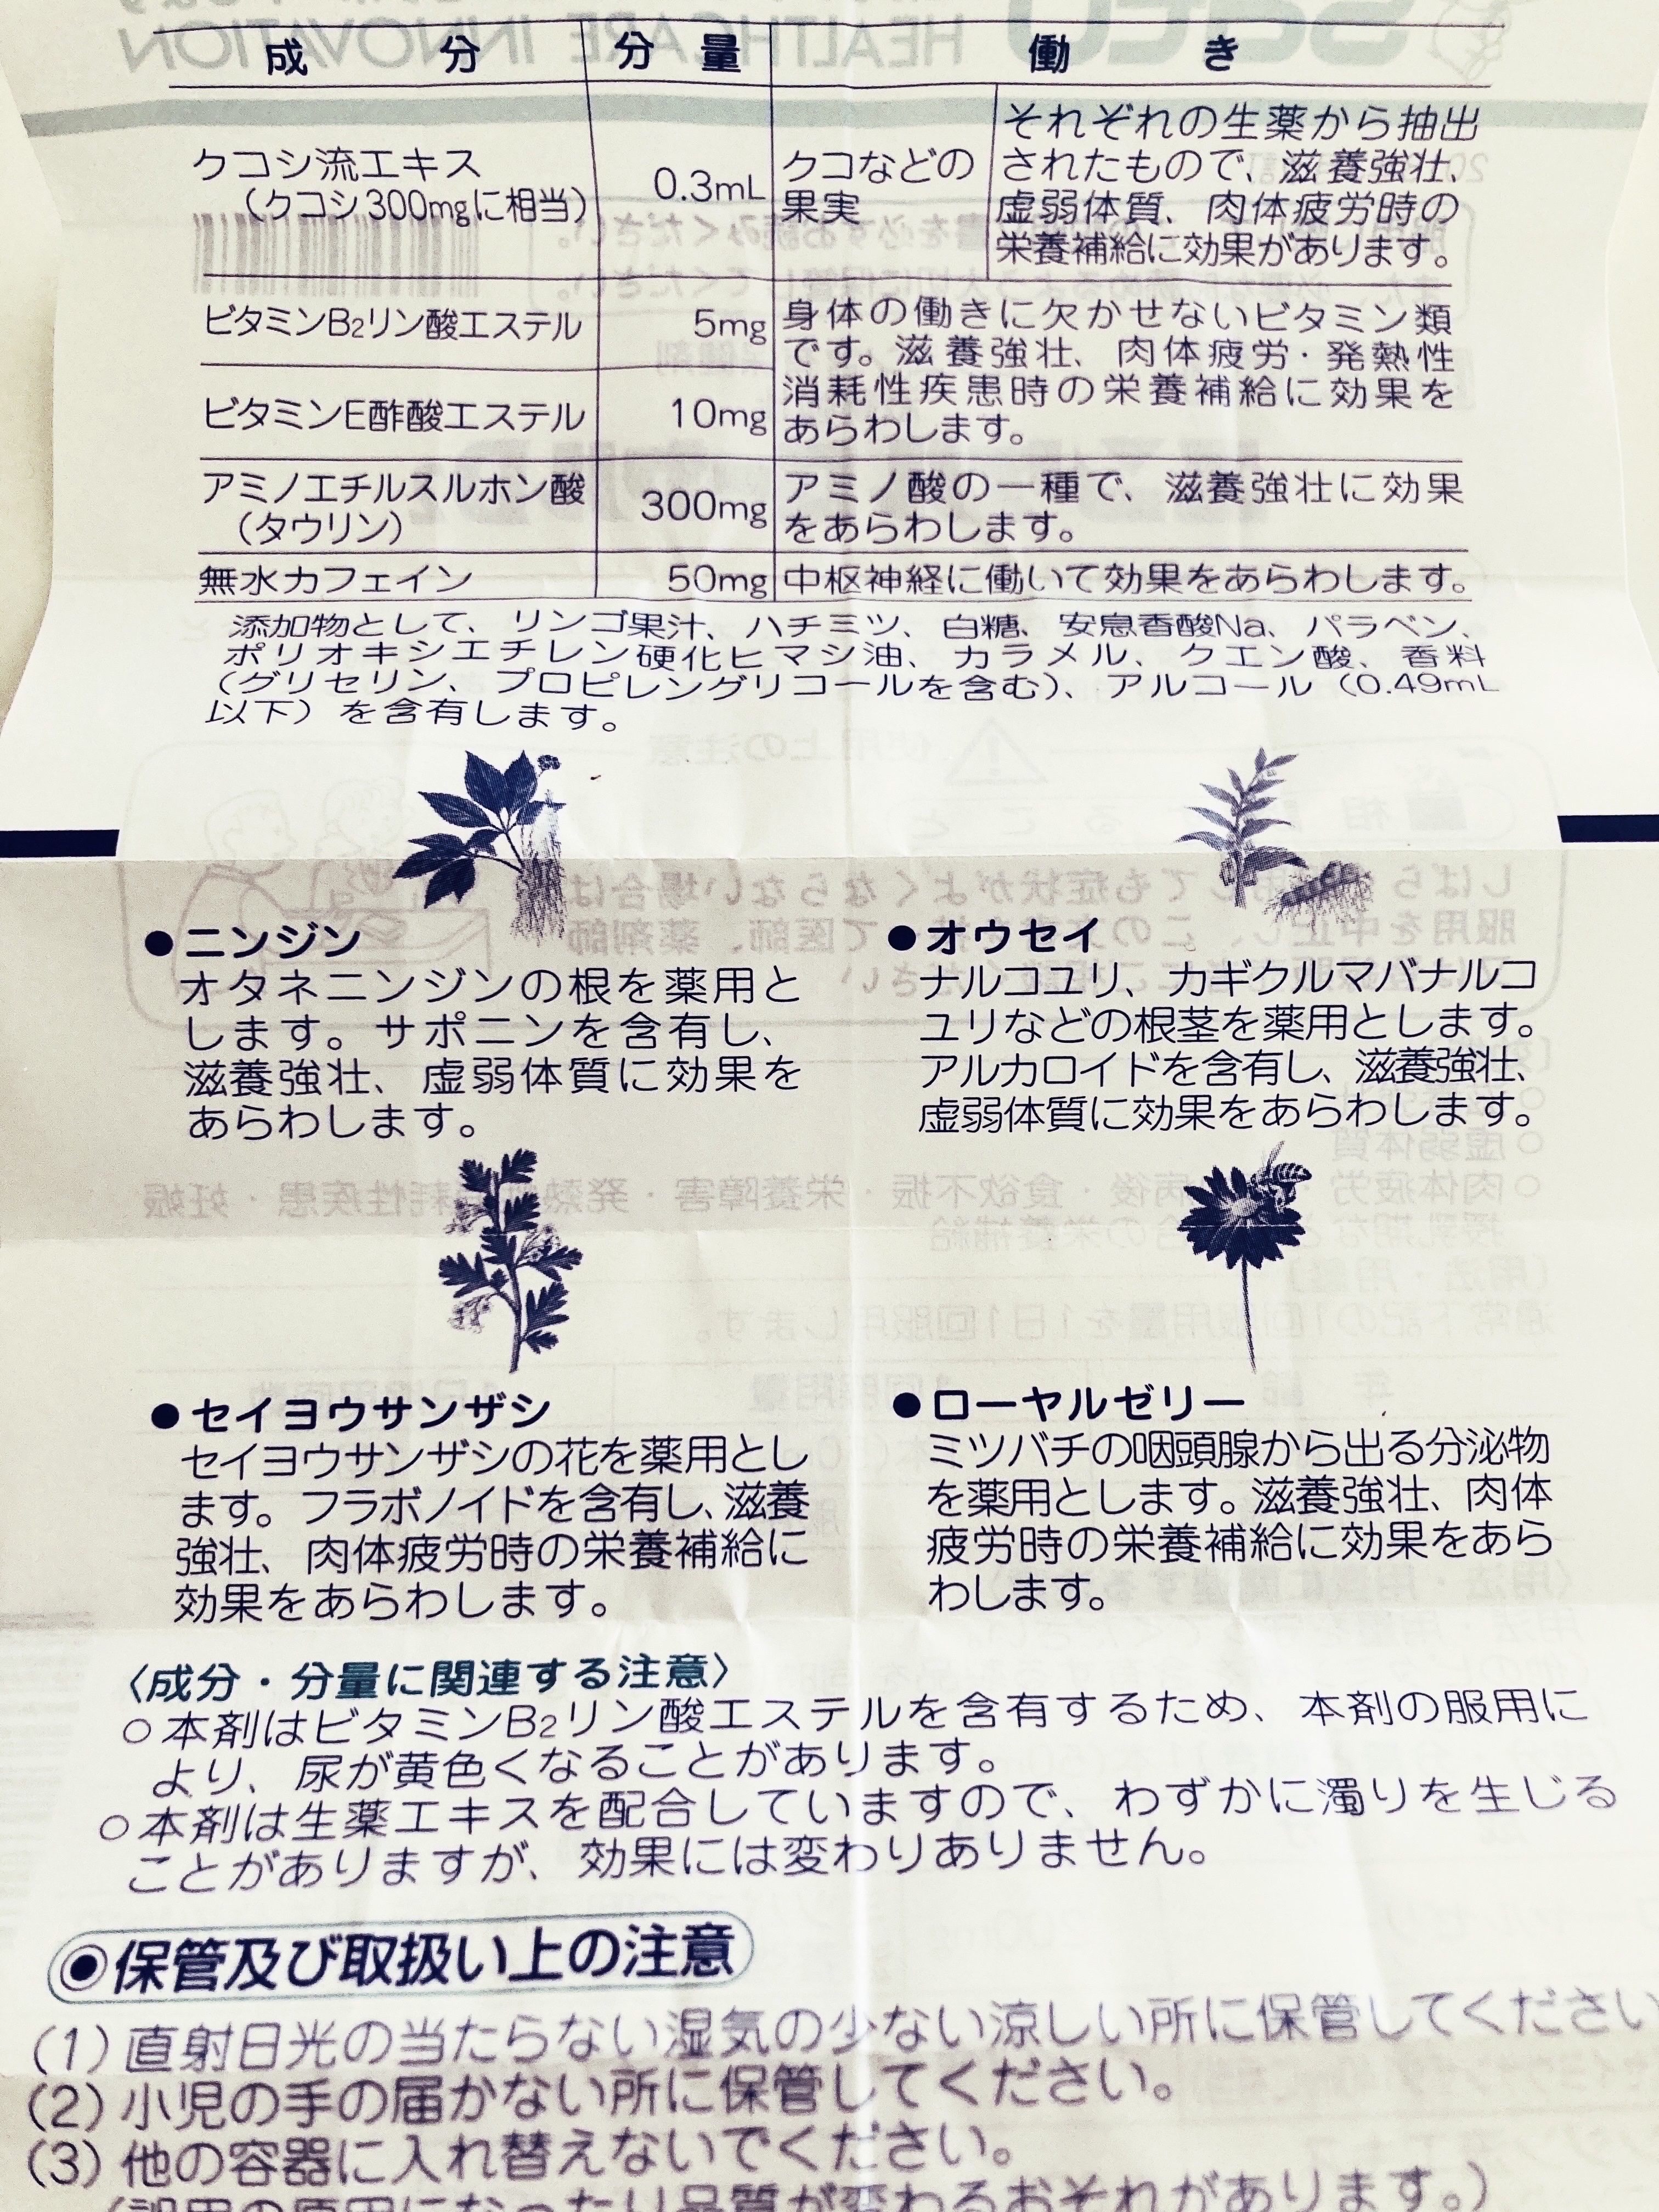 成分 分量 働き
クコシ流エキス
（クコシ300mgに相当）
0.3mL
クコなどの
果実
それぞれの生薬から抽出
されたもので、滋養強壮、
虚弱体質、肉体疲労時の
栄養補給に効果があります。
ビタミンB2リン酸エステル
5mg
ビタミンE酢酸エステル
10mg
身体の働きに欠かせないビタミン類
です。滋養強壮、肉体疲労・発熱性
消耗性疾患時の栄養補給に効果を
あらわします。
アミノエチルスルホン酸
（タウリン）
300mg
アミノ酸の一種で、滋養強壮に効果
をあらわします。
無水カフェイン
50mg
中枢神経に働いて効果をあらわします。
添加物として、リンゴ果汁、ハチミツ、白糖、安息香酸Na、パラベン、
ポリオキシエチレン硬化ヒマシ油、カラメル、クエン酸、香料
（グリセリン、プロピレングリコールを含む）、アルコール（0.49mL
以下）を含有します。
●ニンジン
オタネニンジンの根を薬用と
します。サポニンを含有し、
滋養強壮、虚弱体質に効果を
あらわします。
●オウセイ
ナルコユリ、カギクルマバナルコ
ユリなどの根茎を薬用とします。
アルカロイドを含有し、滋養強壮、
虚弱体質に効果をあらわします。
●セイヨウサンザシ
セイヨウサンザシの花を薬用とし
ます。フラボノイドを含有し、滋養
強壮、肉体疲労時の栄養補給に
効果をあらわします。
●ローヤルゼリー
ミツバチの咽頭腺から出る分泌物
を薬用とします。滋養強壮、肉体
疲労時の栄養補給に効果をあら
わします。
〈成分・分量に関連する注意〉
○本剤はビタミンB2リン酸エステルを含有するため、本剤の服用に
より、尿が黄色くなることがあります。
○本剤は生薬エキスを配合していますので、わずかに濁りを生じる
ことがありますが、効果には変わりありません。
◉保管及び取扱い上の注意
(1)直射日光の当たらない湿気の少ない涼しい所に保管してください
(2)小児の手の届かない所に保管してください。
(3)他の容器に入れ替えないでください。
（誤用の原因になったり品質が変わるおそれがあります。）